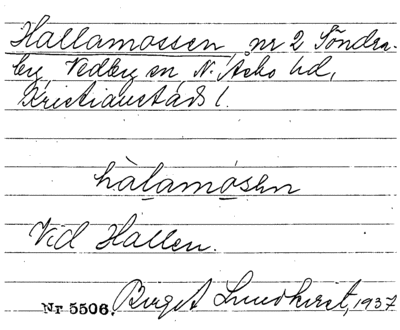 Hallamossen, nr 2 Söndra-
by, Vedby sn N. Åsbo hd,
Kristianstads l.
hàlamósən
Vid Hallen.
Nr 5506. Birgit Lundkvist, 1937